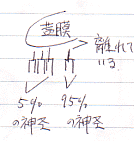 蓋膜
離れて
いる
5%
の神経
95%
の神経